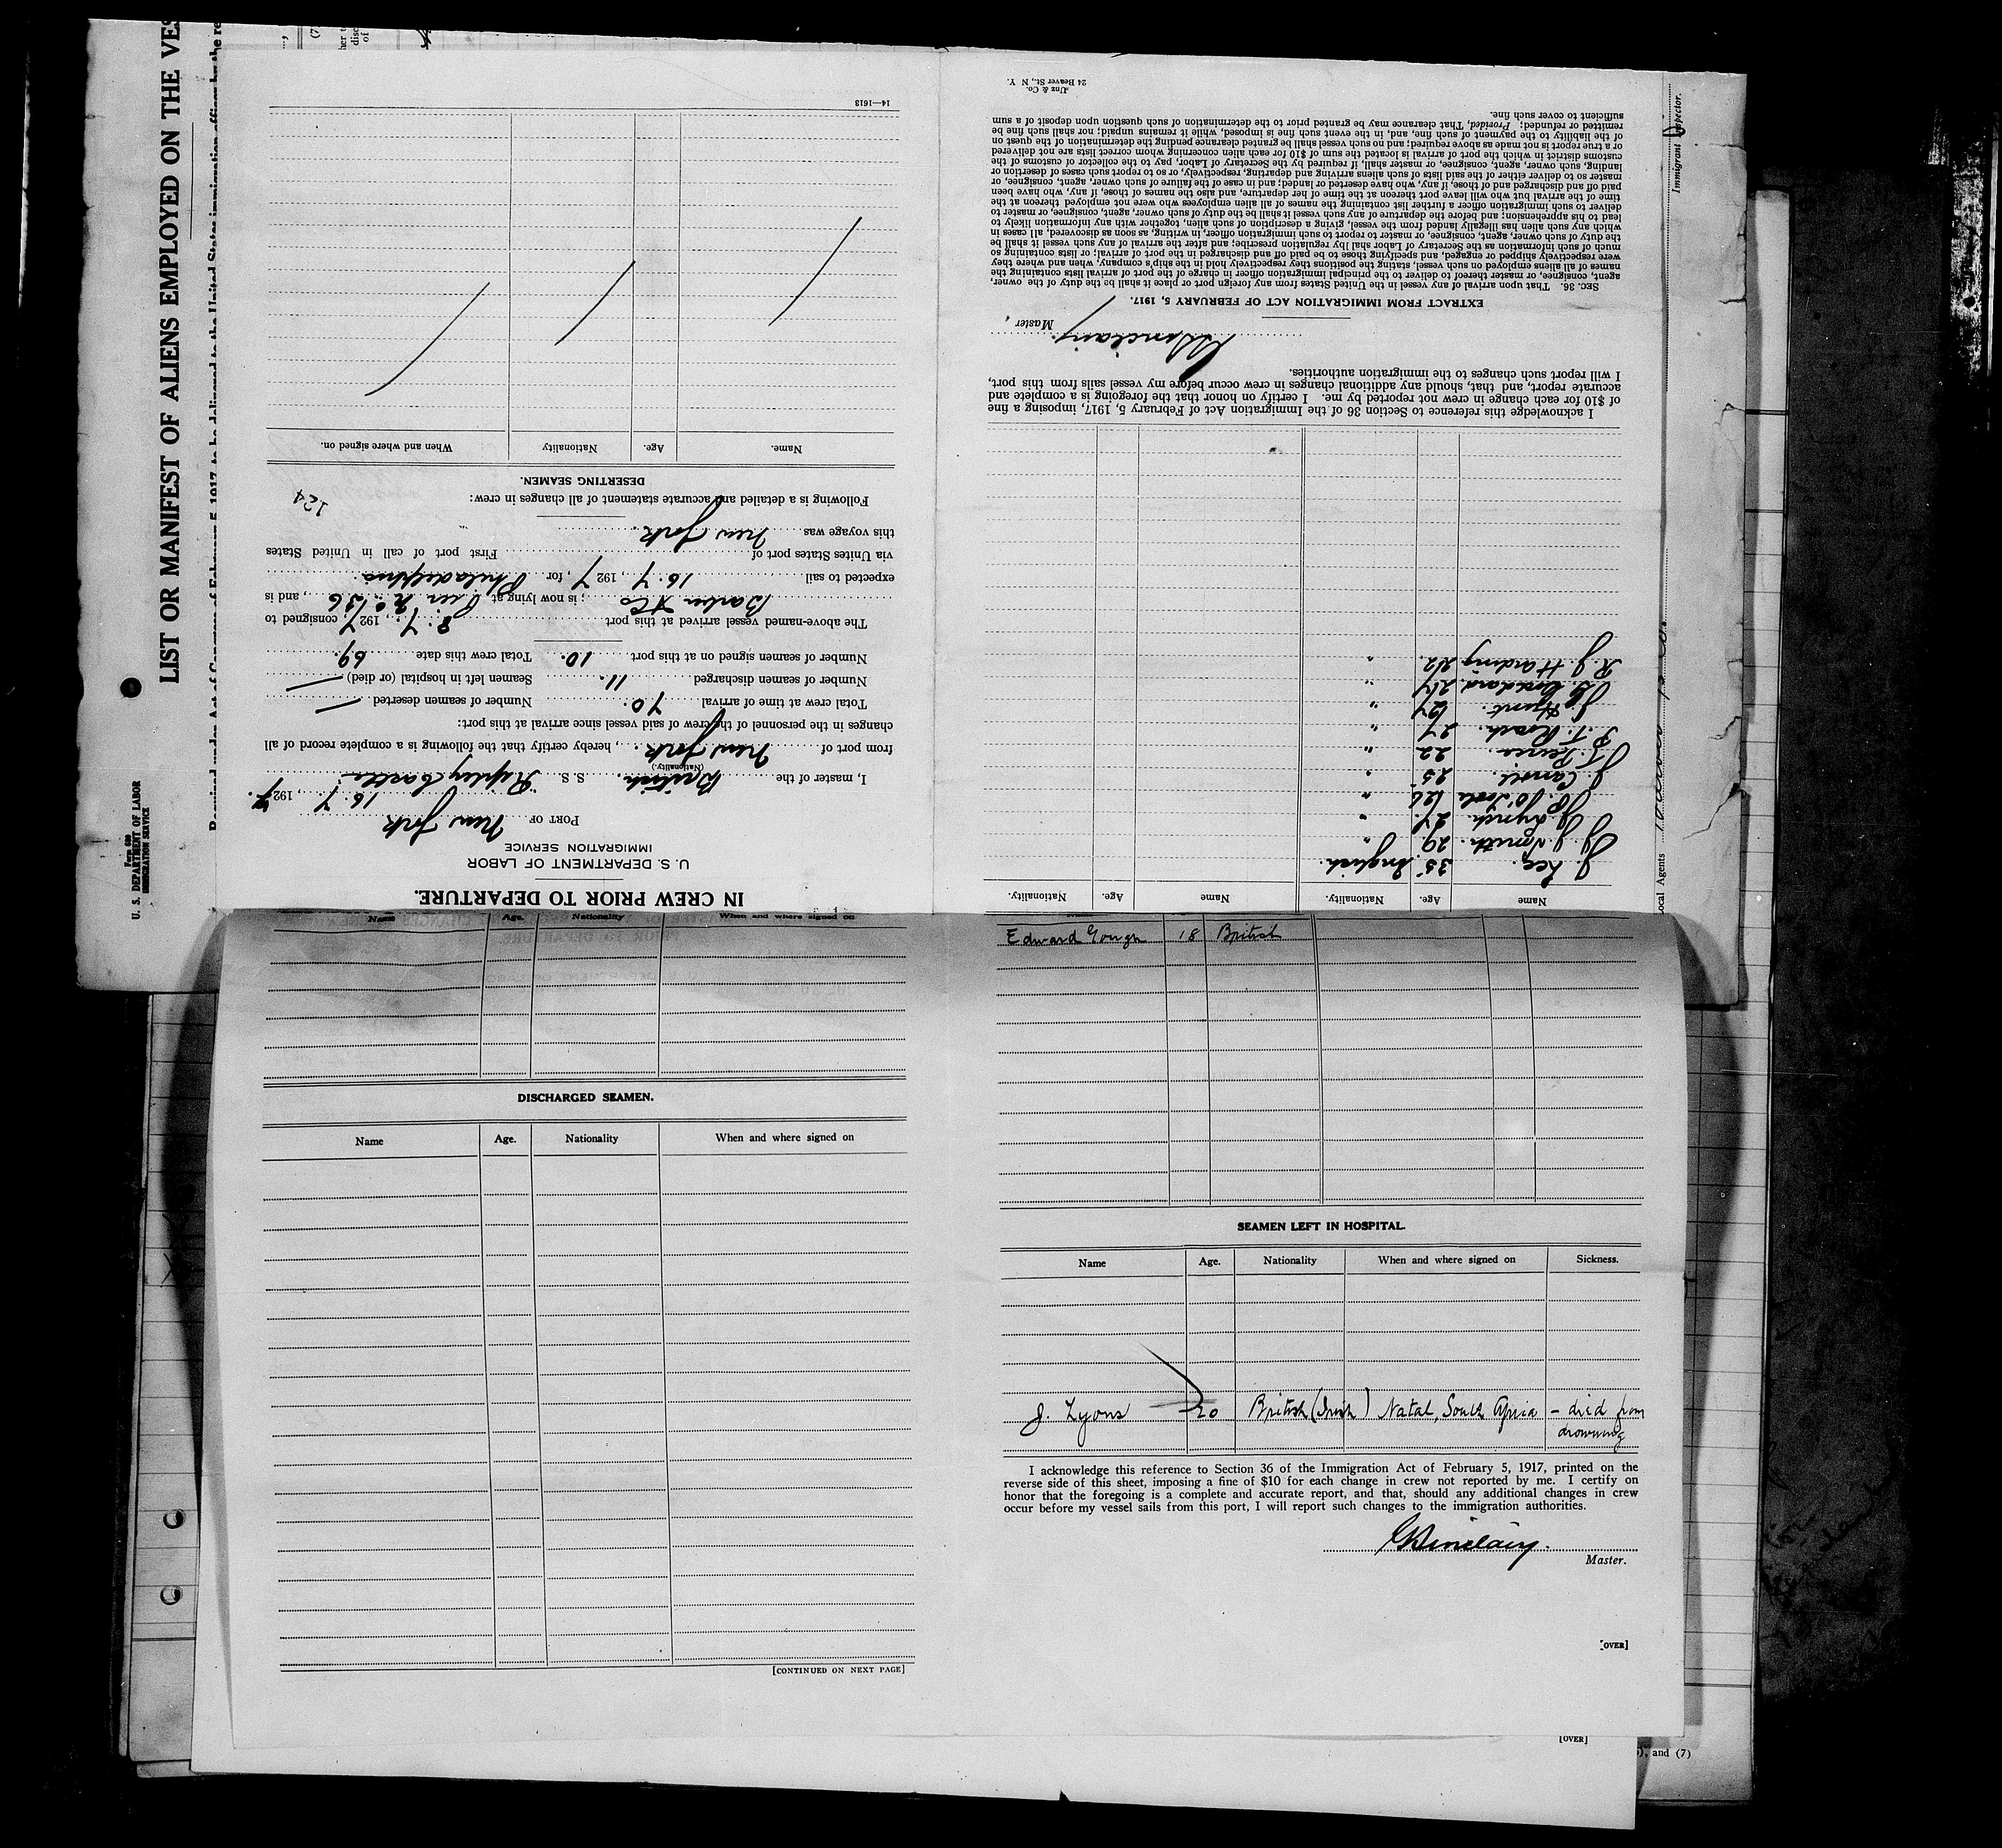 LIST OR MANIFEST OF ALIENS EMPLOYED ON THE VES
U. S. DEPARTMENT OF LABOR
IMMIGRATION SERVICE
Immigrant Inspector.
Local Agents
IN CREW PRIOR TO DEPARTURE.
U. S. DEPARTMENT OF LABOR
IMMIGRATION SERVICE
PORT OF New York 16.7, 1927.
I, master of the British S. S. "Ripley Castle"
(Nationality.)
from port of New York, hereby certify that the following is a complete record of all
changes in the personnel of the crew of said vessel since arrival at this port:
Total crew at time of arrival 70. Number of seamen deserted —
Number of seamen discharged 11. Seamen left in hospital (or died) —
Number of seamen signed on at this port 10. Total crew this date 69.
The above-named vessel arrived at this port 8.7., 1927, consigned to
Barber & Co; is now lying at Pier No 36, and is
expected to sail 16.7, 1927, for Philadelphia
via Unites States port of First port of call in United States
this voyage was New York.
Following is a detailed and accurate statement of all changes in crew:
124
DESERTING SEAMEN.
Name. Age. Nationality When and where signed on.
14—1613
Name Age. Nationality. Name Age. Nationality.
J. Lee. 35 English.
J. J. Smith. 29. "
J. Lynch. 27. "
J. P. O'Toole 26 "
J. Cansie. 25 "
J. Peirce. 22 "
P. T. Roach. 27 "
J. Hunt. 27 "
J. G. Goddard. 24 "
R. J. Harding 22. "
I acknowledge this reference to Section 36 of the Immigration Act of February 5, 1917, imposing a fine
of $10 for each change in crew not reported by me. I certify on honor that the foregoing is a complete and
accurate report, and that, should any additional changes in crew occur before my vessel sails from this port,
I will report such changes to the immigration authorities.
GSinclair.
Master.
EXTRACT FROM IMMIGRATION ACT OF FEBRUARY 5, 1917.
SEC. 36. That upon arrival of any vessel in the United States from any foreign port or place it shall be the duty of the owner,
agent, consignee, or master thereof to deliver to the principal immigration officer in charge of the port of arrival lists containing the
names of all aliens employed on such vessel, stating the positions they respectively hold in the ship's company, when and where they
were respectively shipped or engaged, and specifying those to be paid off and discharged in the port of arrival; or lists containing so
much of such information as the Secretary of Labor shall by regulation prescribe; and after the arrival of any such vessel it shall be
the duty of such owner, agent, consignee, or master to report to such immigration officer, in writing, as soon as discovered, all cases in
which any such alien has illegally landed from the vessel, giving a description of such alien, together with any information likely to
lead to his apprehension; and before the departure of any such vessel it shall be the duty of such owner, agent, consignee, or master to
deliver to such immigration officer a further list containing the names of all alien employees who were not employed thereon at the
time of the arrival but who will leave port thereon at the time of her departure, and also the names of those, if any, who have been
paid off and discharged and of those, if any, who have deserted or landed; and in case of the failure of such owner, agent, consignee, or
master so to deliver either of the said lists of such aliens arriving and departing, respectively, or so to report such cases of desertion or
landing, such owner, agent, consignee, or master shall, if required by the Secretary of Labor, pay to the collector of customs of the
customs district in which the port of arrival is located the sum of $10 for each alien concerning whom correct lists are not delivered
or a true report is not made as above required; and no such vessel shall be granted clearance pending the determination of the quest on
of the liability to the payment of such fine, and, in the event such fine is imposed, while it remains unpaid; nor shall such fine be
remitted or refunded: Provided, That clearance may be granted prior to the determination of such question upon deposit of a sum
sufficient to cover such fine.
Unz & Co.
24 Beaver St., N. Y.
Name Age. Nationality When and where signed on
DISCHARGED SEAMEN.
Name Age. Nationality When and where signed on
[CONTINUED ON NEXT PAGE]
Edward Gough 18 British
SEAMEN LEFT IN HOSPITAL.
Name Age. Nationality When and where signed on Sickness.
J. Lyons 20 British (Irish) Natal, South Africa – died from
drowning
I acknowledge this reference to Section 36 of the Immigration Act of February 5, 1917, printed on the
reverse side of this sheet, imposing a fine of $10 for each change in crew not reported by me. I certify on
honor that the foregoing is a complete and accurate report, and that, should any additional changes in crew
occur before my vessel sails from this port, I will report such changes to the immigration authorities.
GSinclair.
Master.
[OVER]
[OVER]
, and (7)